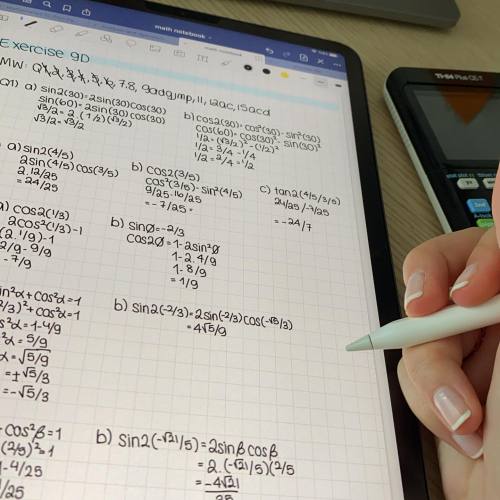 math notebook
Exercise 9D
7,8, 9adgjmp, 11, 12ac, 15acd
Q1) a) sin2(30)=2sin(30)cos(30)
sin(60)=2sin(30)cos(30)
√3/2=2·(1/2)(√3/2)
√3/2=√3/2
b) cos2(30)=cos²(30)-sin²(30)
cos(60)=cos(30)²-sin(30)²
1/2=(√3/2)²-(1/2)²
1/2=3/4-1/4
1/2=2/4=1/2
a) sin2(4/5)
2sin(4/5)cos(3/5)
2·12/25
=24/25
b) cos2(3/5)
cos²(3/5)-sin²(4/5)
9/25-16/25
=-7/25
c) tan2(4/5/3/5)
24/25/-7/25
=-24/7
a) cos2(1/3)
2cos²(1/3)-1
(2·1/9)-1
2/9-9/9
-7/9
b) sinØ=-2/3
cos2Ø=1-2sin²Ø
1-2·4/9
1-8/9
=1/9
sin²α+cos²α=1
2/3)²+cos²α=1
s²α=1-4/9
²α=5/9
α=√5/9
=±√5/3
=-√5/3
b) sin2(-2/3)=2sin(-2/3)cos(-√5/3)
=4√5/9
+cos²β=1
(2/5)²=1
1-4/25
1/25
b) sin2(-√21/5)=2sinβcosβ
=2·(-√21/5)(2/5
=-4√21
25
TI-84 Plus CE-T